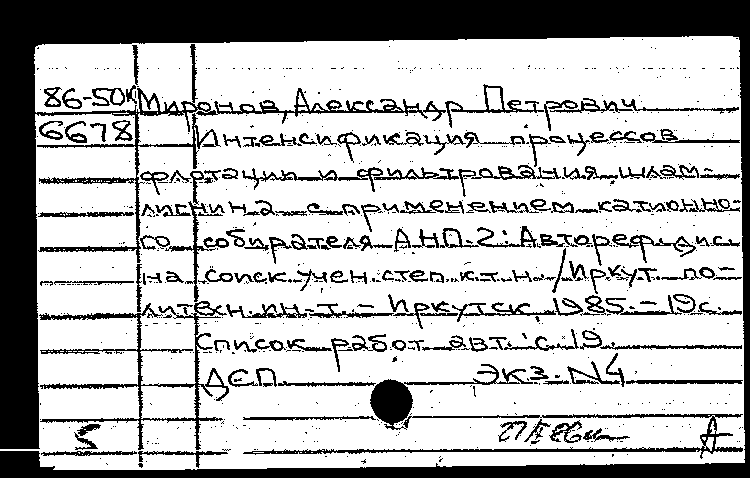 86-50к Миронов, Александр Петрович.
6678 Интенсификация процессов
флотации и фильтрования шлам-
лигнина с применением катионно-
го собирателя АНП-2: Автореф. дис.
на соиск. учен. степ. к.т.н. / Иркут. по-
литехн. ин-т. - Иркутск, 1985. - 19 с.
Список работ авт.: с. 19.
ДСП. Экз. N4
5 А